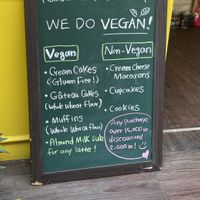 WE DO VEGAN!
Vegan
• Cream Cakes
(Gluten Free!)
• Gâteau Cakes
(Whole Wheat Flour)
• Muffins
(Whole Wheat Flour)
• Almond Milk Sub
for any latte!
Non-Vegan
• Cream Cheese
Macarons
• Cupcakes
• Cookies
Any purchase
over 15,000 or
discounted
2,000 !